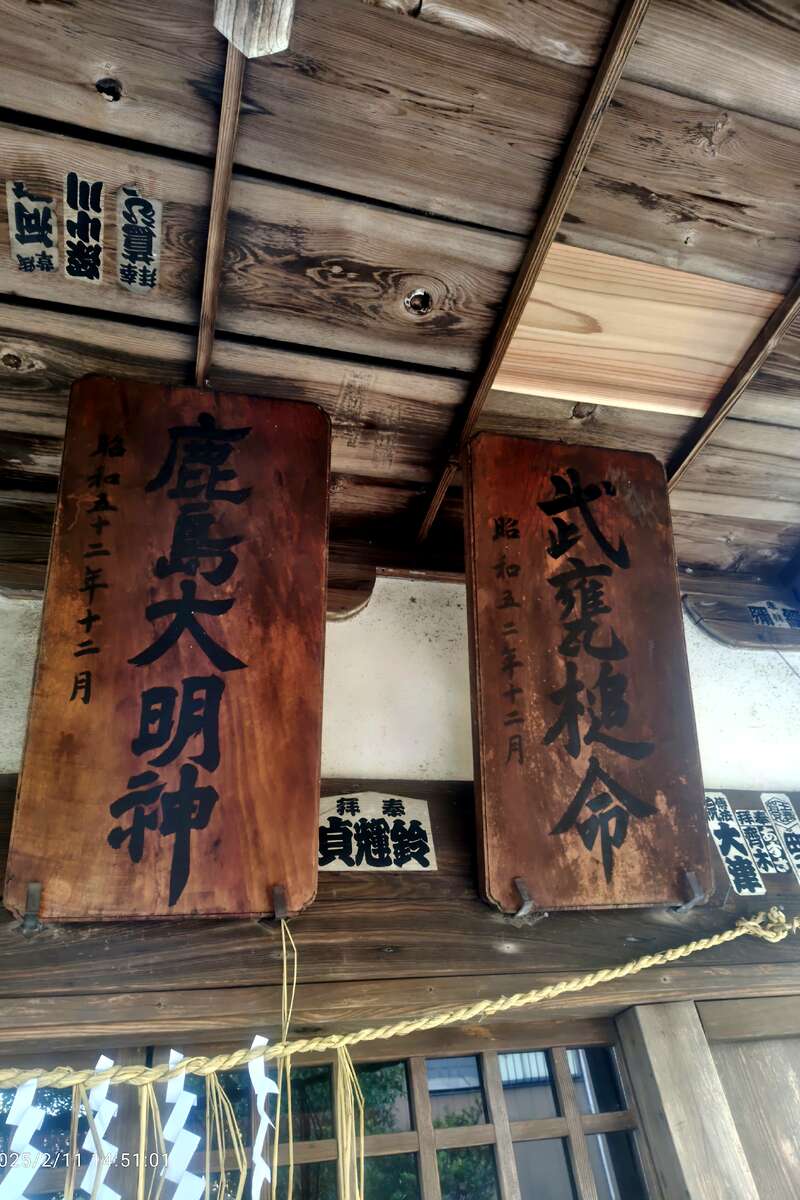 武甕槌命
昭和五二年十二月
鹿島大明神
昭和五十二年十二月
奉拝
鈴輝貞
大津
川小
025/2/11 14:51:01